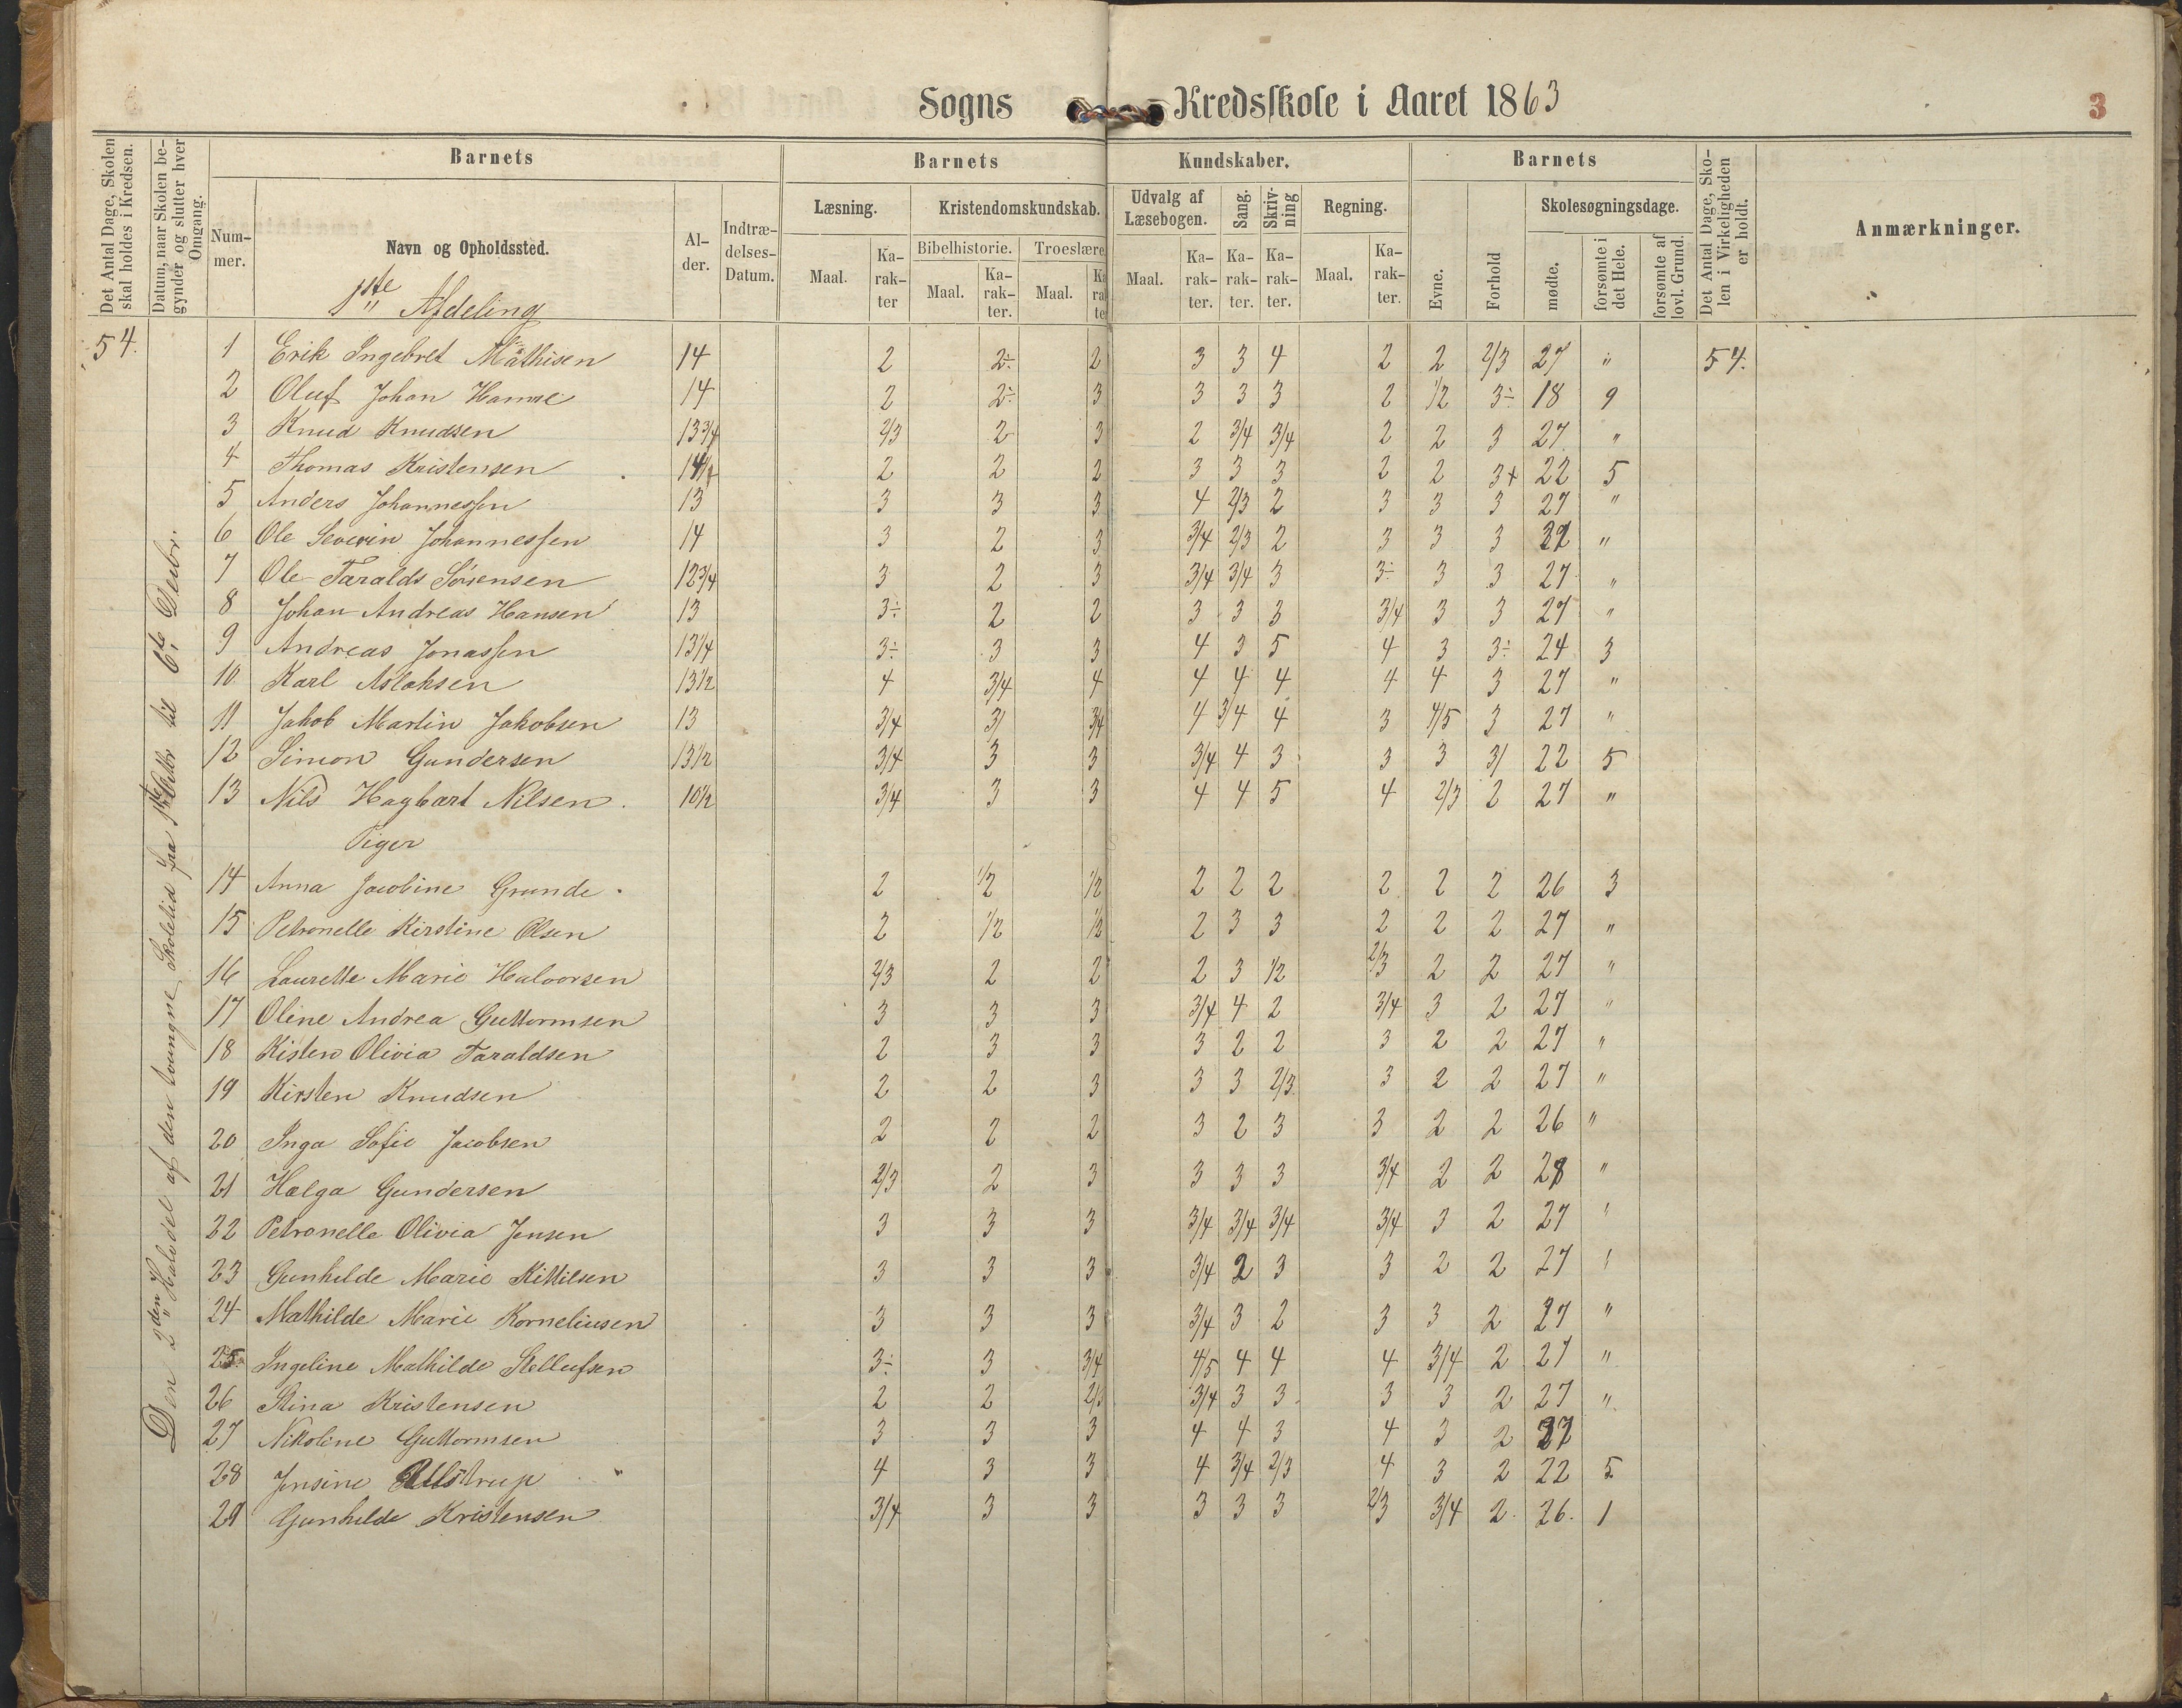 Sogns Kredsskole i Aaret 1863
3
Det Antal Dage, Skolen skal holdes i Kredsen.
Datum, naar Skolen begynder og slutter hver Omgang.
Barnets
Barnets Kundskaber.
Barnets
Det Antal Dage, Skolen i Virkeligheden er holdt.
Anmærkninger.
Nummer.
Navn og Opholdssted.
Alder.
Indtrædelses-Datum.
Læsning.
Kristendomskundskab.
Udvalg af Læsebogen.
Sang.
Skrivning
Regning.
Evne.
Forhold
Skolesøgningsdage.
Bibelhistorie.
Troeslære
mødte.
forsømte i det Hele.
forsømte af lovl. Grund.
Maal. Karakter Maal. Karakter. Maal. Ka ra te Maal. Karakter. Karakter. Karakter. Maal. Karakter.
1ste Afdeling
54. 1 Erik Ingebret Mathisen 14 2 2÷ 2 3 3 4 2 2 2/3 27 " 54.
2 Oluf Johan Hamre 14 2 2÷ 3 3 3 3 2 1/2 3÷ 18 9
3 Knud Knudsen 13 3/4 2/3 2 3 2 3/4 3/4 2 2 3 27 "
4 Thomas Kristensen 14 1/2 2 2 2 3 3 3 2 2 3+ 22 5
5 Anders Johannessen 13 3 3 3 4 2/3 2 3 3 3 27 "
6 Ole Severin Johannessen 14 3 2 3 3/4 2/3 2 3 3 3 27 "
7 Ole Taralds Sørensen 12 3/4 3 2 3 3/4 3/4 3 3÷ 3 3 27 "
8 Johan Andreas Hansen 13 3÷ 2 2 3 3 3 3/4 3 3 27 "
9 Andreas Jonassen 13 1/4 3÷ 3 3 4 3 5 4 3 3÷ 24 3
10 Karl Aslaksen 13 1/2 4 3/4 4 4 4 4 4 4 3 27 "
11 Jakob Martin Jakobsen 13 3/4 3/ 3/4 4 3/4 4 3 4/5 3 27 "
12 Simon Gundersen 13 1/2 3/4 3 3 3/4 4 3 3 3 3/ 22 5
13 Nils Hagbart Nilsen. 10 1/2 3/4 3 3 4 4 5 4 2/3 2 27 "
Piger
14 Anna Jacobine Grunde. 2 1/2 1/2 2 2 2 2 2 2 26 3
15 Petronelle Kirstine Olsen 2 1/2 1/2 2 3 3 2 2 2 27 "
16 Laurette Marie Halvorsen 2/3 2 2 2 3 1/2 2/3 2 2 27 "
17 Oline Andrea Guttormsen 3 3 3 3/4 4 2 3/4 3 2 27 "
18 Kisten Olivia Taraldsen 2 3 3 3 2 2 3 2 2 27 "
19 Kirsten Knudsen 2 2 3 3 3 2/3 3 2 2 27 "
20 Inga Sofie Jacobsen 2 2 2 3 2 3 3 2 2 26 "
21 Hælga Gundersen 2/3 2 3 3 3 3 3/4 2 2 28 "
22 Petronelle Olivia Jensen 3 3 3 3/4 3/4 3/4 3/4 3 2 27 "
23 Gunhilde Marie Kittilsen 3 3 3 3/4 2 3 3 2 2 27 "
24 Mathilde Marie Korneliusen 3 3 3 3/4 3 2 3 3 2 27 "
25 Ingeline Mathilde Stellufsen 3÷ 3 3/4 4/5 4 4 4 3/4 2 27 "
26 Stina Kristensen 2 2 2/3 3/4 3 3 3 3 2 27 "
27 Nikoline Guttormsen 3 3 3 4 4 3 4 3 2 27
28 Jensine 4 3 3 4 3/4 2/3 4 3 2 22 5
29 Gunhilde Kristensen 3/4 3 3 3 3 3 2/3 3/4 2. 26. 1
Den 2den Halvdel af den tvungne Skoletid fra til 6te Decbr.